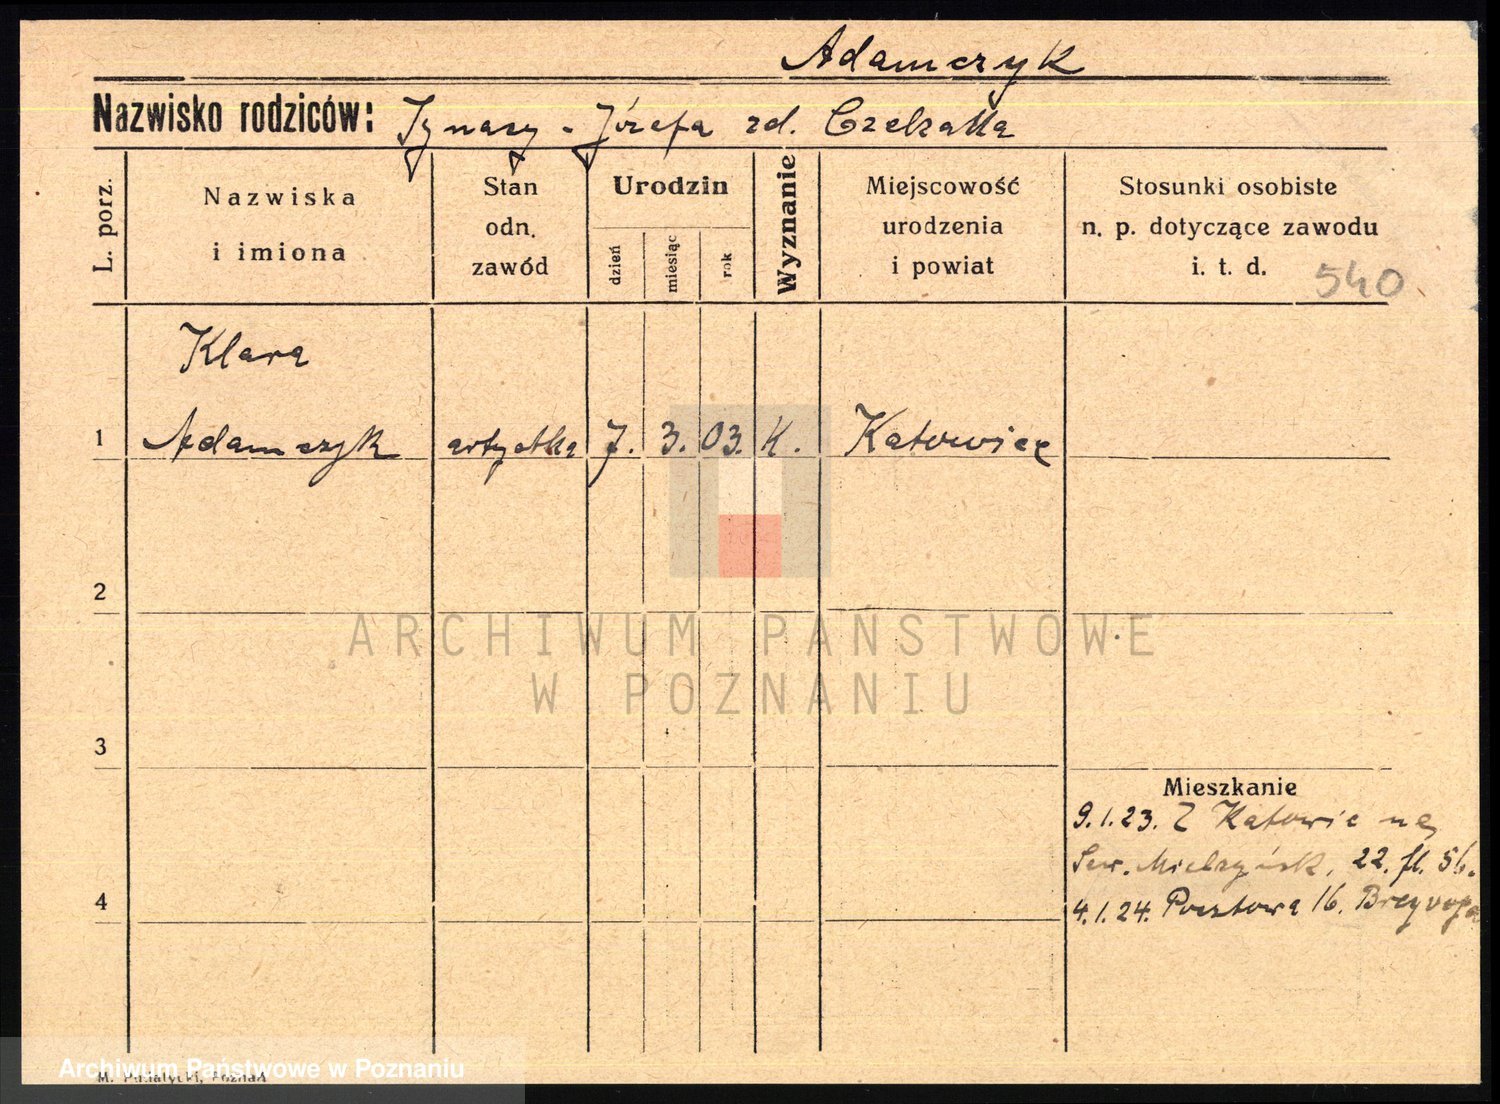 Adamczyk
Nazwisko rodziców: Ignacy - Józefa zd.
L. porz.
Nazwiska i imiona
Stan odn. zawód
Urodzin
dzień
miesiąc
rok
Wyznanie
Miejscowość urodzenia i powiat
Stosunki osobiste n. p. dotyczące zawodu i. t. d.
540
Klara
1 Adamczyk artystka 7. 3. 03. K. Katowice
2
ARCHIWUM PAŃSTWOWE
W POZNANIU
3
Mieszkanie
9.1.23. Z Katowic na
Sew. Mielżyńsk. 22. fl. 56.
4
4.1.24. Pocztowa 16.
Archiwum Państwowe w Poznaniu
M. Poznań